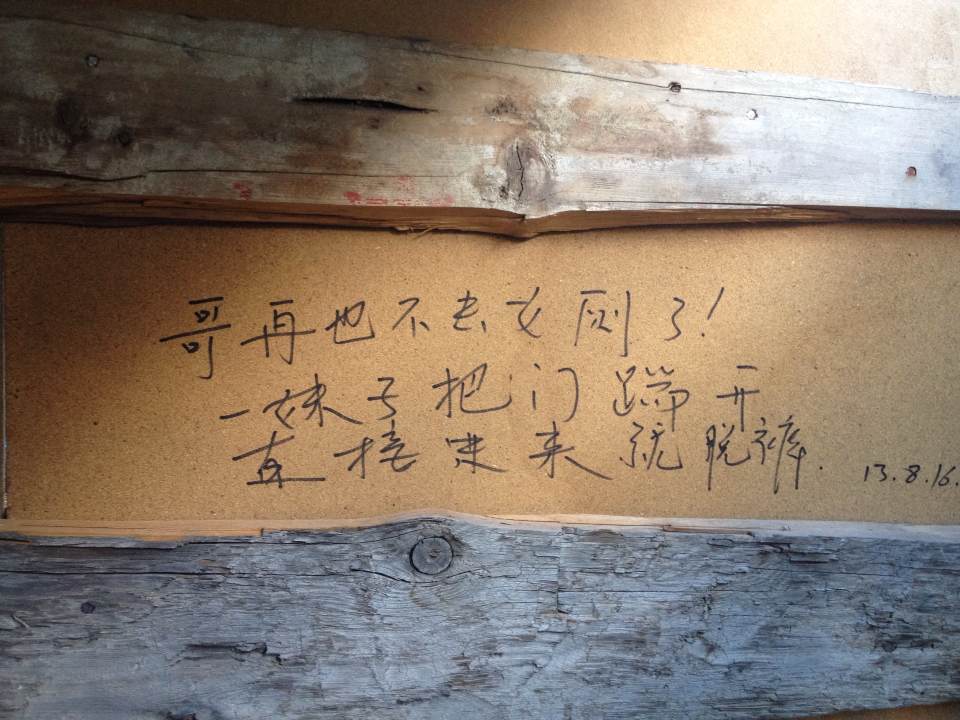 哥再也不去女厕了!
一妹子把门踹开
直接进来就脱裤. 13.8.16.